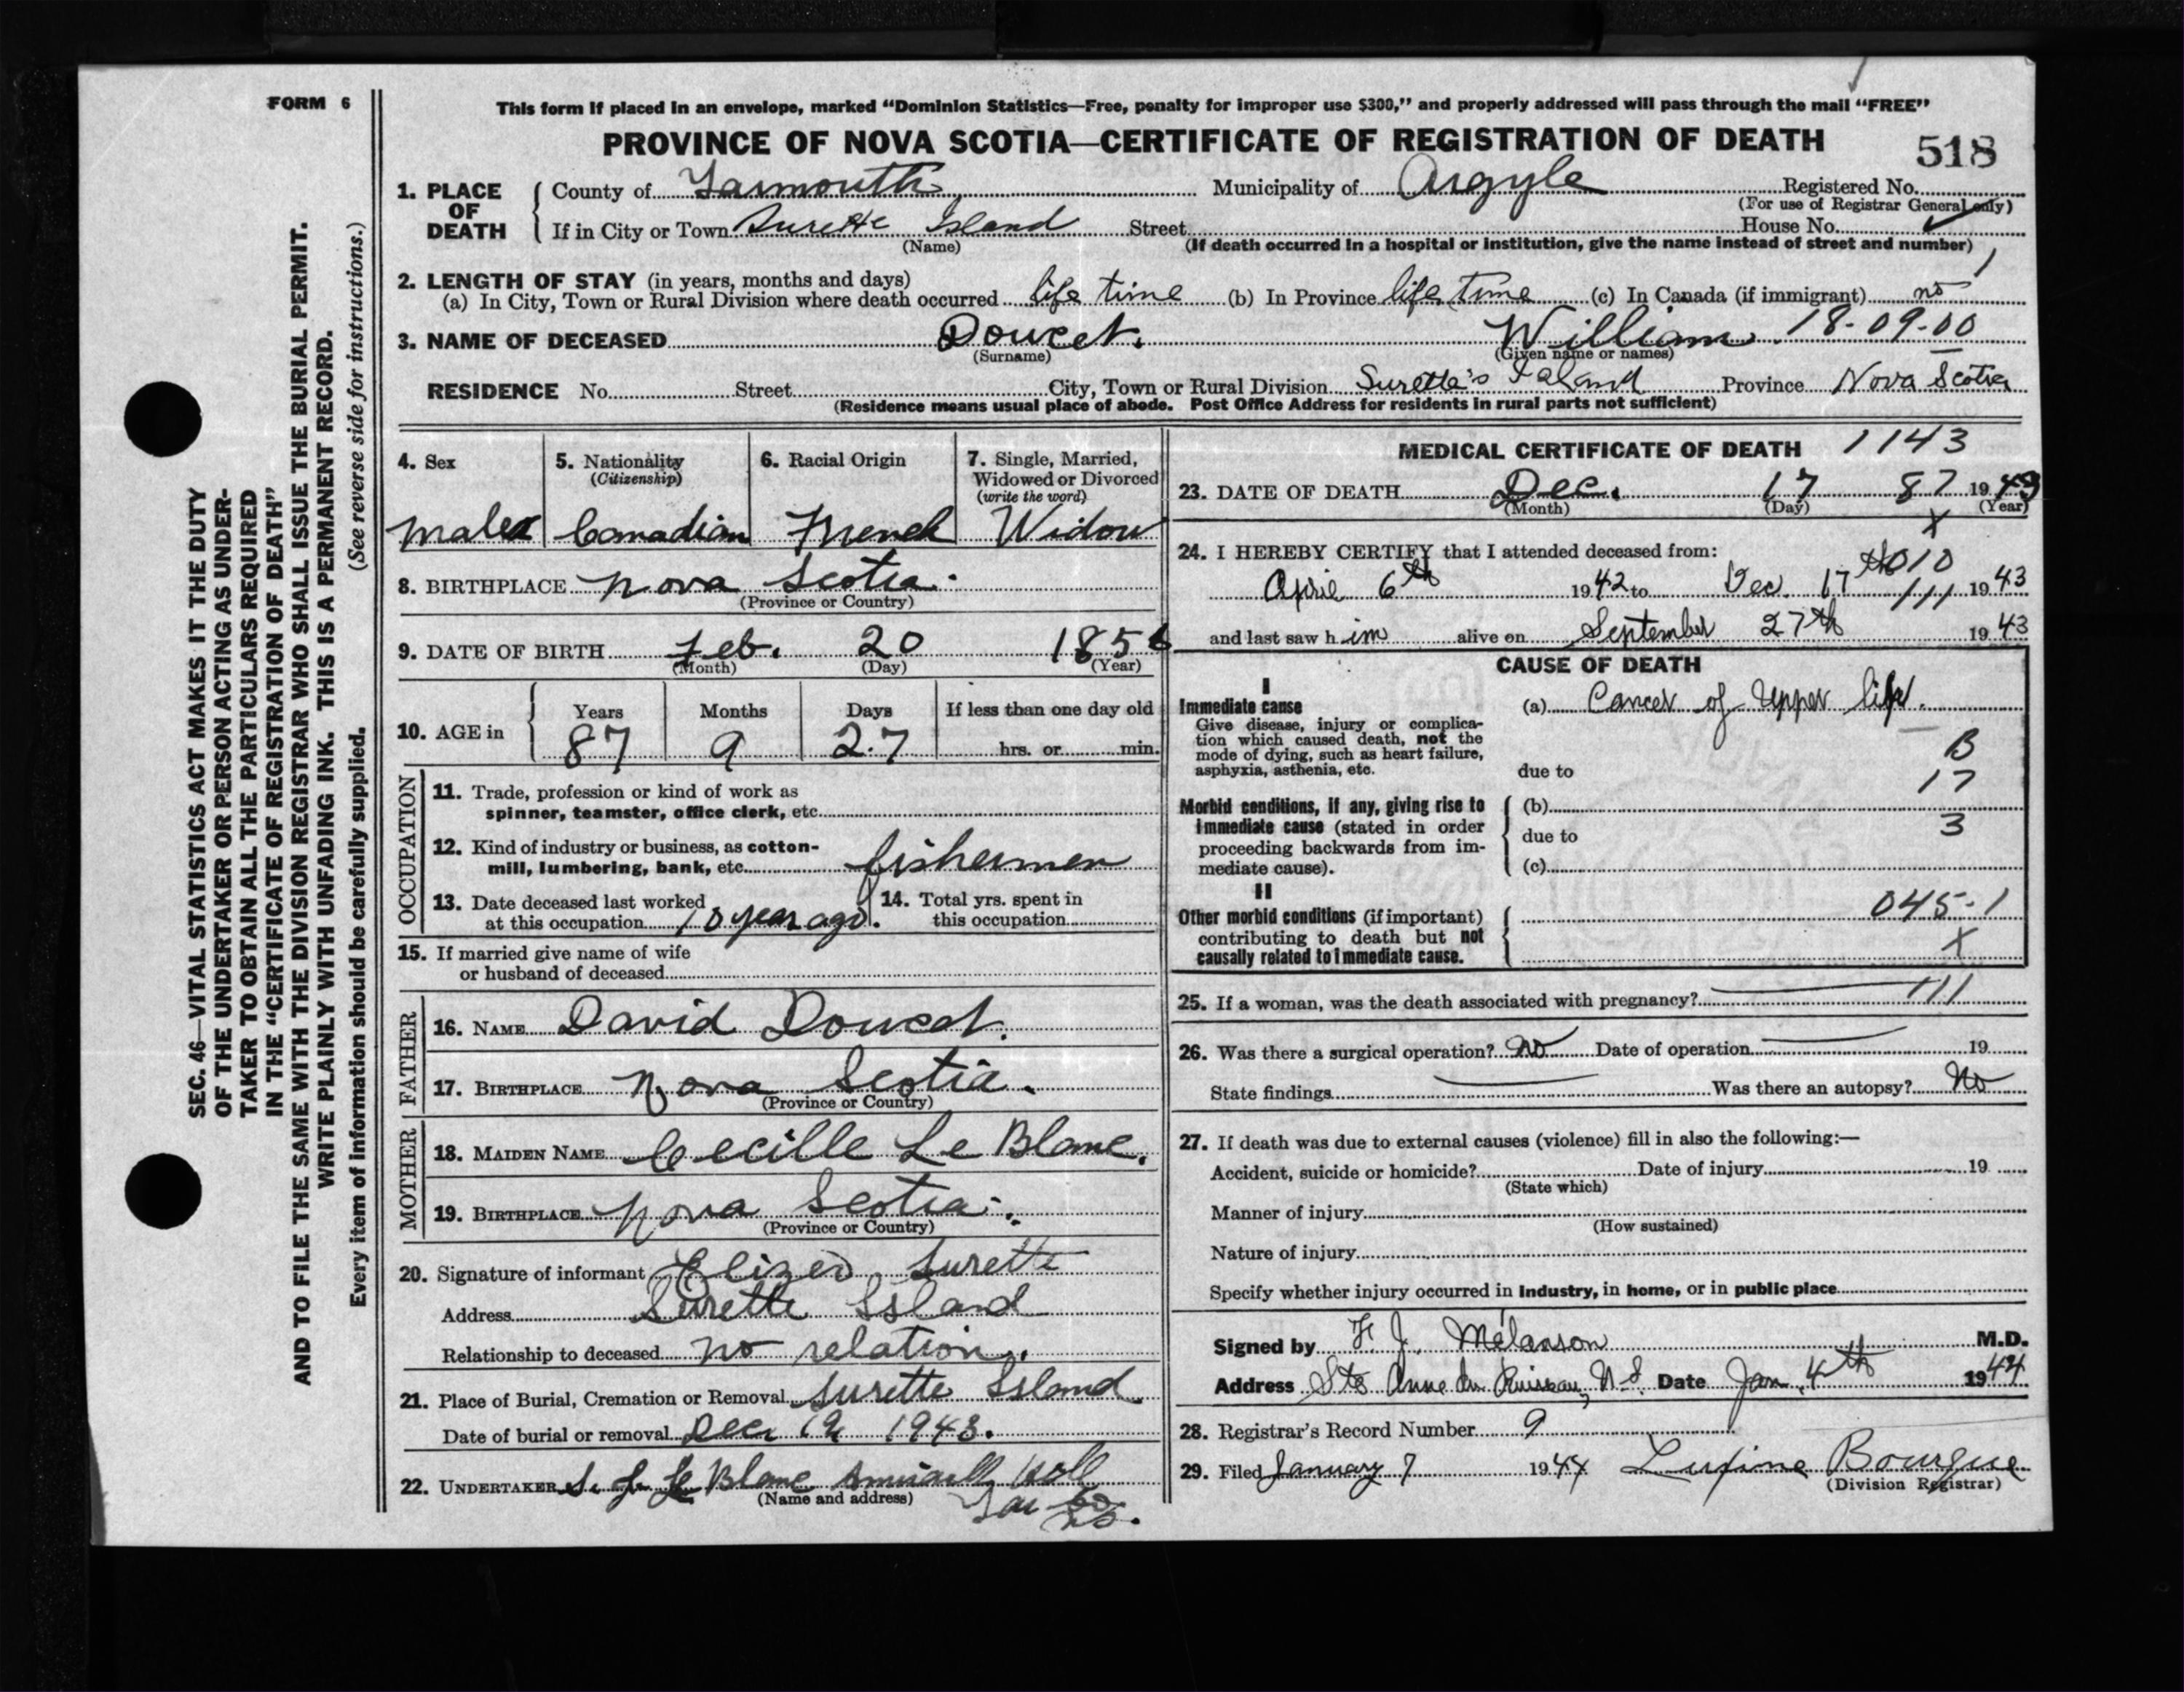 FORM 6
This form if placed in an envelope, marked “Dominion Statistics—Free, penalty for improper use $300,” and properly addressed will pass through the mail “FREE”
PROVINCE OF NOVA SCOTIA—CERTIFICATE OF REGISTRATION OF DEATH
518
1. PLACE OF DEATH
County of Yarmouth Municipality of Argyle Registered No.
(For use of Registrar General only)
If in City or Town Surette Island Street House No.
(Name) (If death occurred in a hospital or institution, give the name instead of street and number)
2. LENGTH OF STAY (in years, months and days)
(a) In City, Town or Rural Division where death occurred life time (b) In Province life time (c) In Canada (if immigrant) no
3. NAME OF DECEASED Doucet. William. 18-09-00
(Surname) (Given name or names)
RESIDENCE No. Street City, Town or Rural Division Surette's Island Province Nova Scotia
(Residence means usual place of abode. Post Office Address for residents in rural parts not sufficient)
SEC. 46—VITAL STATISTICS ACT MAKES IT THE DUTY
OF THE UNDERTAKER OR PERSON ACTING AS UNDER-
TAKER TO OBTAIN ALL THE PARTICULARS REQUIRED
IN THE “CERTIFICATE OF REGISTRATION OF DEATH”
AND TO FILE THE SAME WITH THE DIVISION REGISTRAR WHO SHALL ISSUE THE BURIAL PERMIT.
WRITE PLAINLY WITH UNFADING INK. THIS IS A PERMANENT RECORD.
Every item of information should be carefully supplied. (See reverse side for instructions.)
4. Sex
Male
5. Nationality
(Citizenship)
Canadian
6. Racial Origin
French
7. Single, Married,
Widowed or Divorced
(write the word)
Widow
8. BIRTHPLACE Nova Scotia.
(Province or Country)
9. DATE OF BIRTH Feb. 20 1856
(Month) (Day) (Year)
10. AGE in
Years Months Days If less than one day old
87 9 27 hrs. or min.
OCCUPATION
11. Trade, profession or kind of work as
spinner, teamster, office clerk, etc.
12. Kind of industry or business, as cotton-
mill, lumbering, bank, etc. fishermen
13. Date deceased last worked
at this occupation 10 year ago.
14. Total yrs. spent in
this occupation
15. If married give name of wife
or husband of deceased
FATHER
16. NAME David Doucet.
17. BIRTHPLACE Nova Scotia.
(Province or Country)
MOTHER
18. MAIDEN NAME Cecille Le Blanc.
19. BIRTHPLACE Nova Scotia.
(Province or Country)
20. Signature of informant Elizeo Surette
Address Surette Island
Relationship to deceased no relation.
21. Place of Burial, Cremation or Removal Surette Island
Date of burial or removal Dec 19 1943.
22. UNDERTAKER Le Blanc
(Name and address)
MEDICAL CERTIFICATE OF DEATH 1143
23. DATE OF DEATH Dec. 17 87 1943
(Month) (Day) (Year)
X
24. I HEREBY CERTIFY that I attended deceased from:
010
April 6th 1942 to Dec. 17th 1943
111
and last saw him alive on September 27th 1943
CAUSE OF DEATH
I
Immediate cause
Give disease, injury or complica-
tion which caused death, not the
mode of dying, such as heart failure,
asphyxia, asthenia, etc.
(a) Cancer of Upper lip.
B
due to
17
Morbid conditions, if any, giving rise to
immediate cause (stated in order
proceeding backwards from im-
mediate cause).
(b)
due to 3
(c)
II
Other morbid conditions (if important)
contributing to death but not
causally related to immediate cause.
045-1
X
25. If a woman, was the death associated with pregnancy? 111
26. Was there a surgical operation? No Date of operation 19
State findings Was there an autopsy? No
27. If death was due to external causes (violence) fill in also the following:—
Accident, suicide or homicide? Date of injury 19
(State which)
Manner of injury
(How sustained)
Nature of injury
Specify whether injury occurred in industry, in home, or in public place
Signed by F. J. Melanson M.D.
Address Ste Anne du Ruisseau, N.S. Date Jan. 4th 1944
28. Registrar's Record Number 9
29. Filed January 7 1944 Bourque
(Division Registrar)